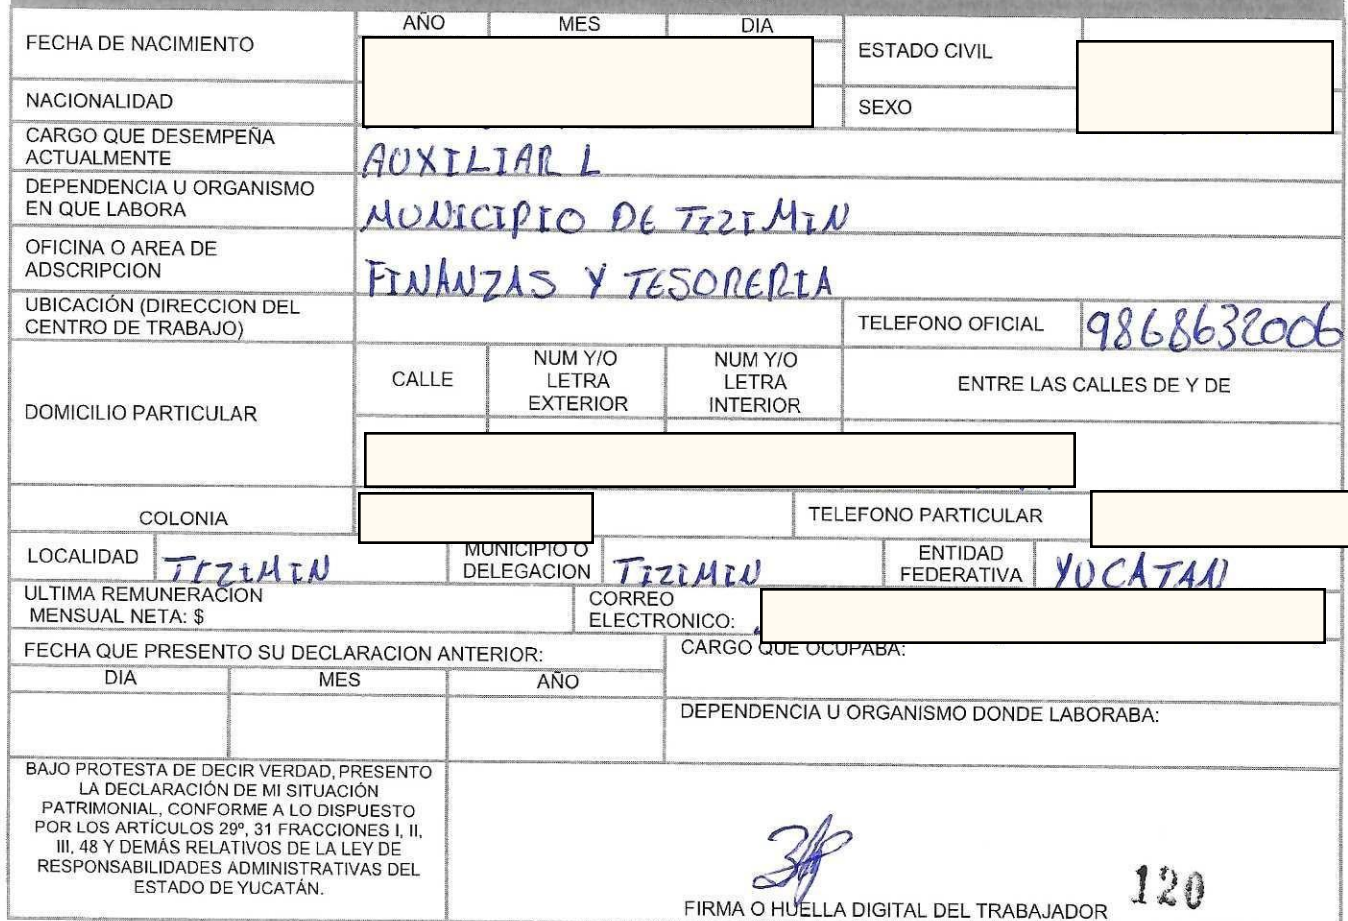 AÑO MES DIA
FECHA DE NACIMIENTO
ESTADO CIVIL
NACIONALIDAD
SEXO
CARGO QUE DESEMPEÑA
ACTUALMENTE
AUXILIAR L
DEPENDENCIA U ORGANISMO
EN QUE LABORA
MUNICIPIO DE TIZIMIN
OFICINA O AREA DE
ADSCRIPCION
FINANZAS Y TESORERIA
UBICACIÓN (DIRECCION DEL
CENTRO DE TRABAJO)
TELEFONO OFICIAL 9868632006
DOMICILIO PARTICULAR
CALLE
NUM Y/O
LETRA
EXTERIOR
NUM Y/O
LETRA
INTERIOR
ENTRE LAS CALLES DE Y DE
COLONIA
TELEFONO PARTICULAR
LOCALIDAD TIZIMIN
MUNICIPIO O
DELEGACION TIZIMIN
ENTIDAD
FEDERATIVA YUCATAN
ULTIMA REMUNERACION
MENSUAL NETA: $
CORREO
ELECTRONICO:
FECHA QUE PRESENTO SU DECLARACION ANTERIOR:
CARGO QUE OCUPABA:
DIA MES AÑO
DEPENDENCIA U ORGANISMO DONDE LABORABA:
BAJO PROTESTA DE DECIR VERDAD, PRESENTO
LA DECLARACIÓN DE MI SITUACIÓN
PATRIMONIAL, CONFORME A LO DISPUESTO
POR LOS ARTÍCULOS 29º, 31 FRACCIONES I, II,
III, 48 Y DEMÁS RELATIVOS DE LA LEY DE
RESPONSABILIDADES ADMINISTRATIVAS DEL
ESTADO DE YUCATÁN.
120
FIRMA O HUELLA DIGITAL DEL TRABAJADOR